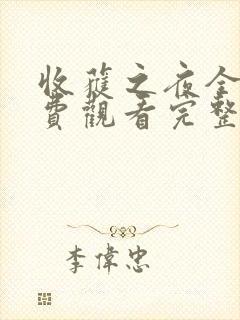 收穫之夜全
費觀看完整
李偉忠